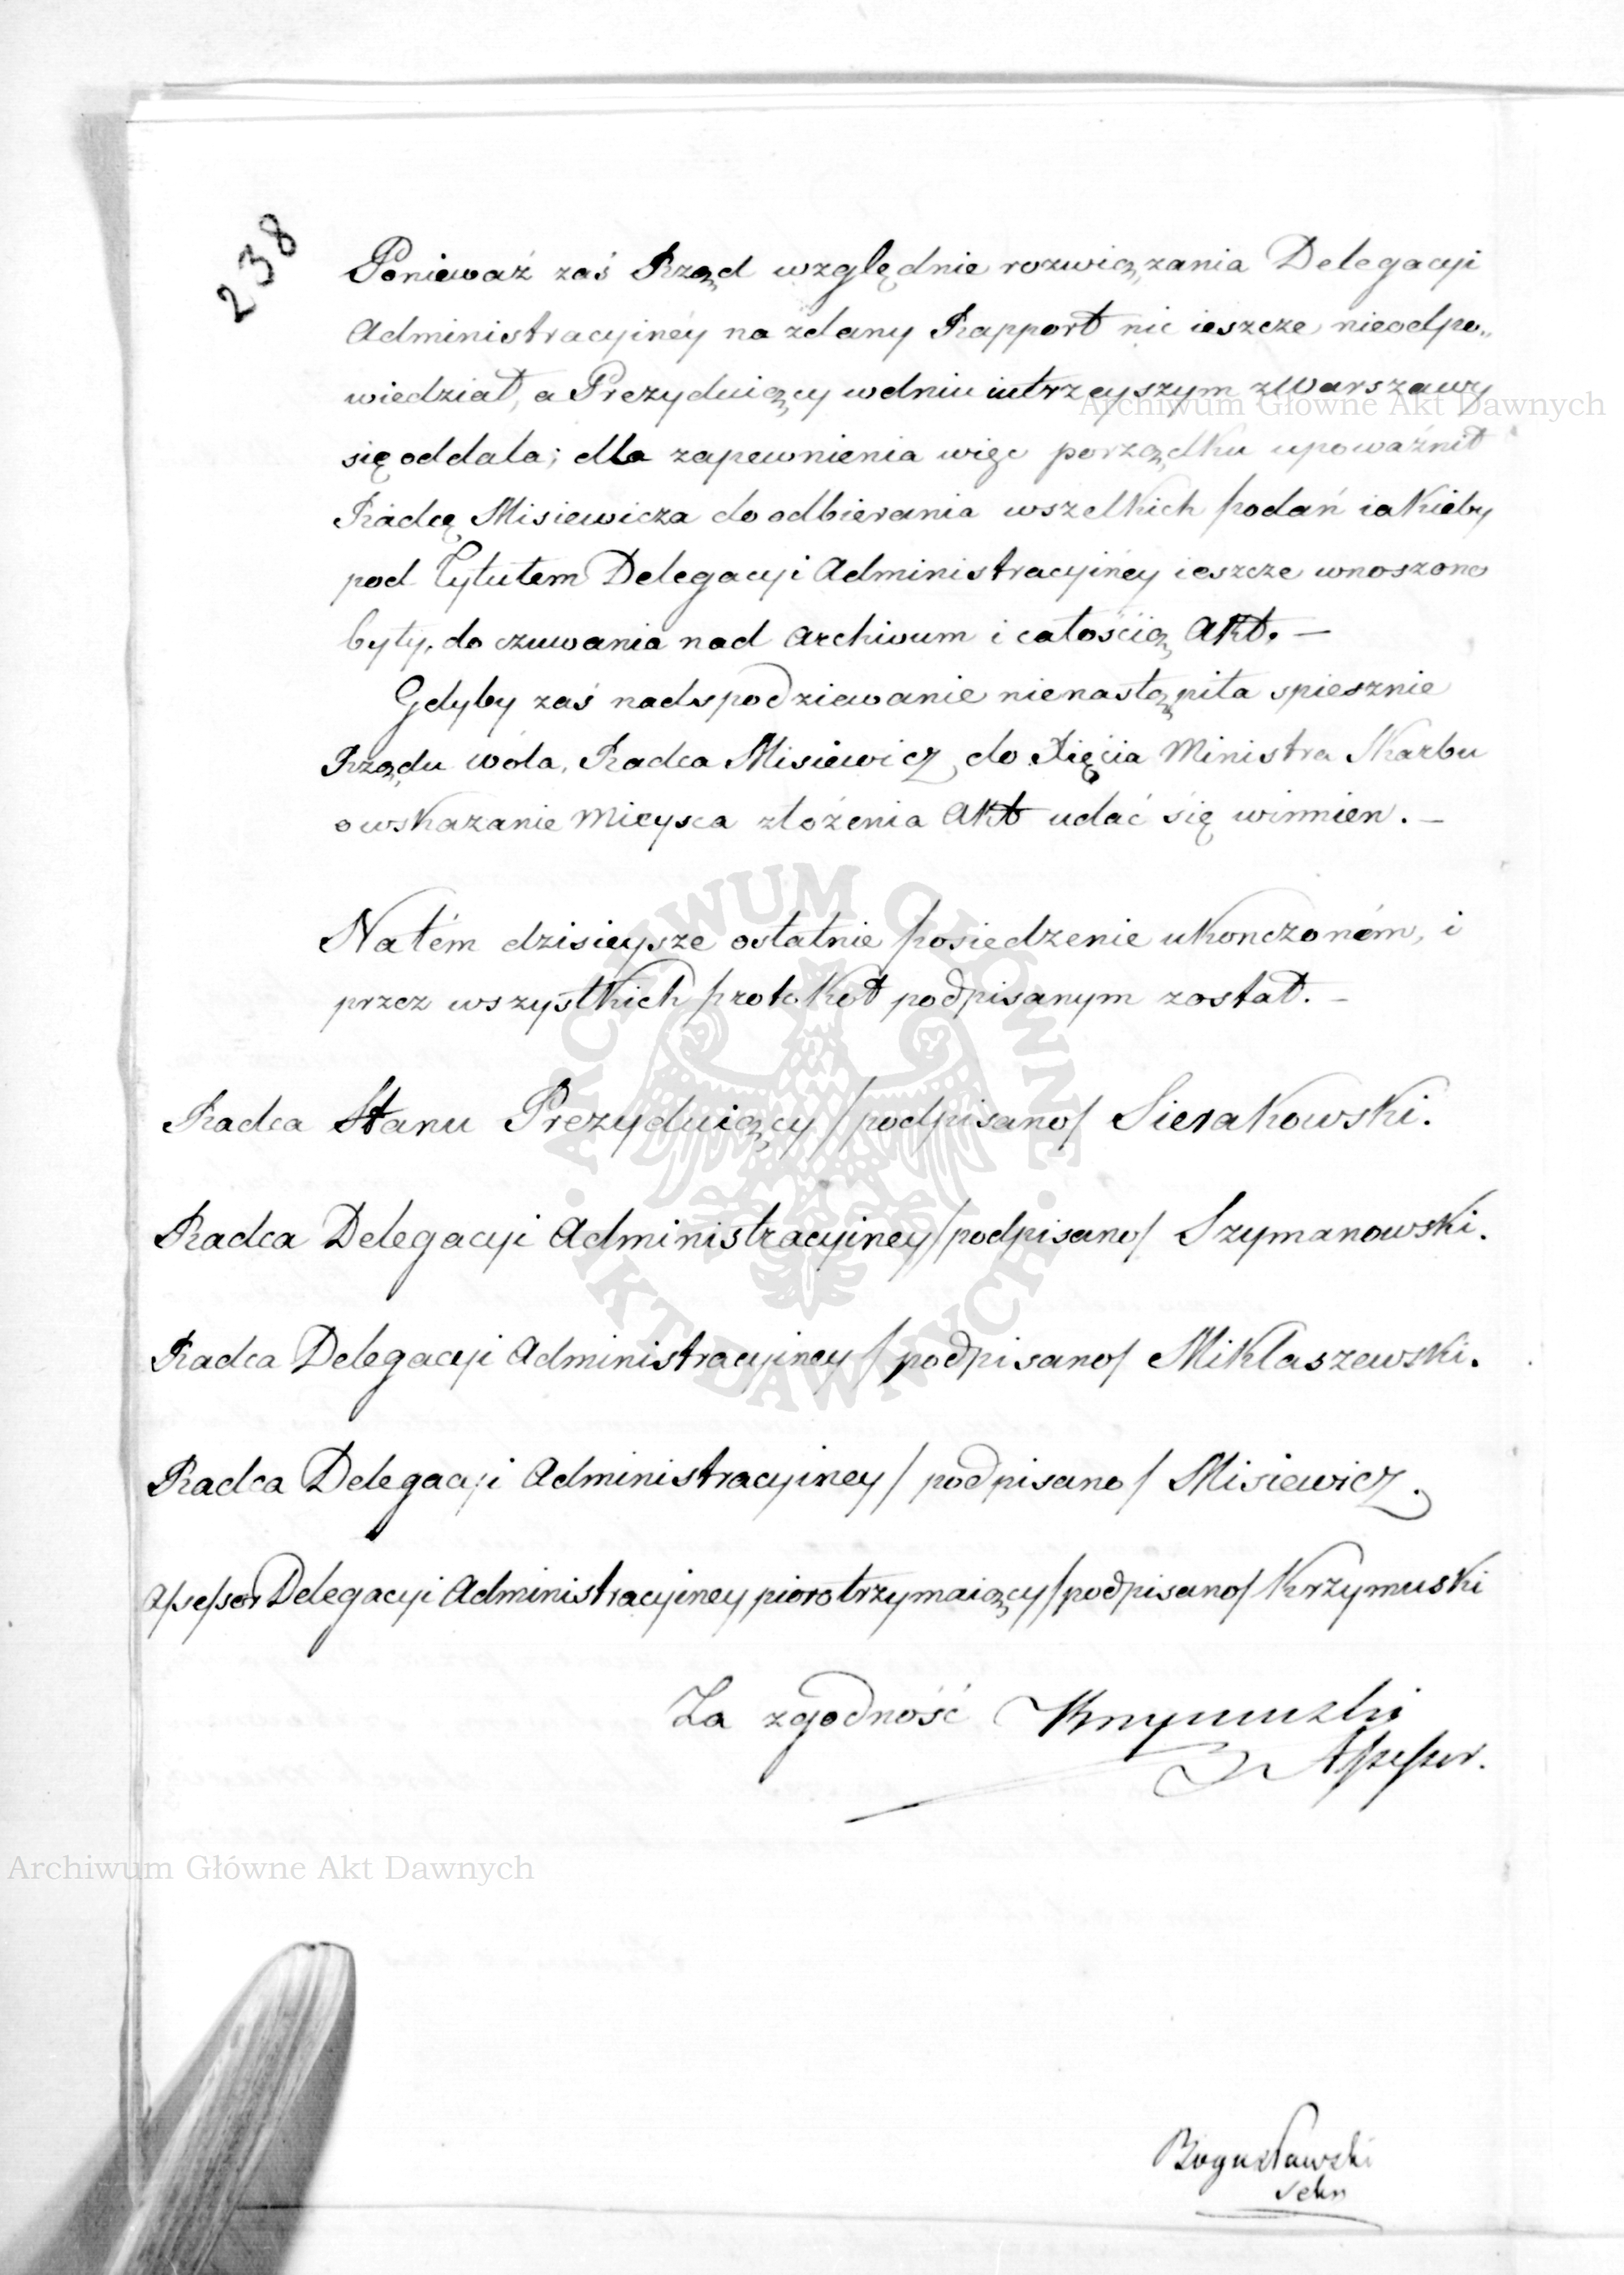 238
Ponieważ zaś Rząd względnie rozwiązania Delegacyi
Administracyiney na zdany Rapport nic ieszcze nieodpo„
wiedział, a Prezyduiący wdniu iutrzeyszym zWarszawy
Archiwum Główne Akt Dawnych
się oddala; dla zapewnienia więc porządku upoważnił
Radcę Misiewicza do odbierania wszelkich podań iakieby
pod Tytułem Delegacyi Administracyiney ieszcze wnoszone
były, do czuwania nad Archivum i całością Akt. —
Gdyby zaś nadspodziewanie nienastąpiła spiesznie
Rządu wola, Radca Misiewicz do Xięcia Ministra Skarbu
o wskazanie Mieysca złożenia Akt udać się winnien. —
Natém dzisieysze ostatnie posiedzenie ukonczoném, i
przez wszystkich protokoł podpisanym został. —
Radca Stanu Prezyduiący /podpisano/ Sierakowski.
Radca Delegacyi Administracyiney /podpisano/ Szymanowski.
Radca Delegacyi Administracyiney /podpisano/ Miklaszewski.
Radca Delegacyi Administracyiney /podpisano/ Misiewicz.
Assessor Delegacyi Administracyiney pioro trzymaiący /podpisano/ Krzymuski
Za zgodność Krzymuski
Assessor.
Archiwum Główne Akt Dawnych
Bogusławski
Sekr
ARCHIWUM GŁÓWNE · AKT DAWNYCH ·